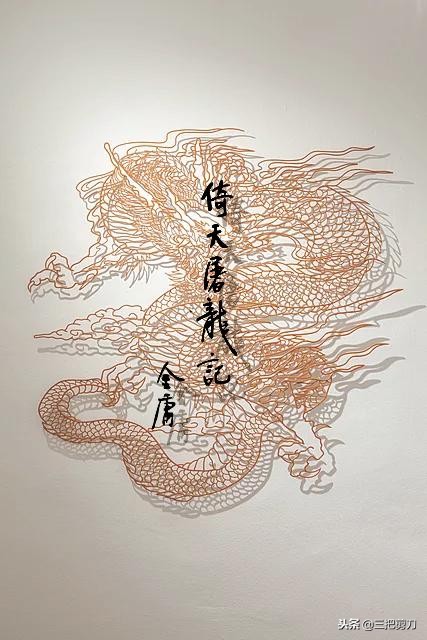 倚天屠龍記
金庸
头条 @三把剪刀